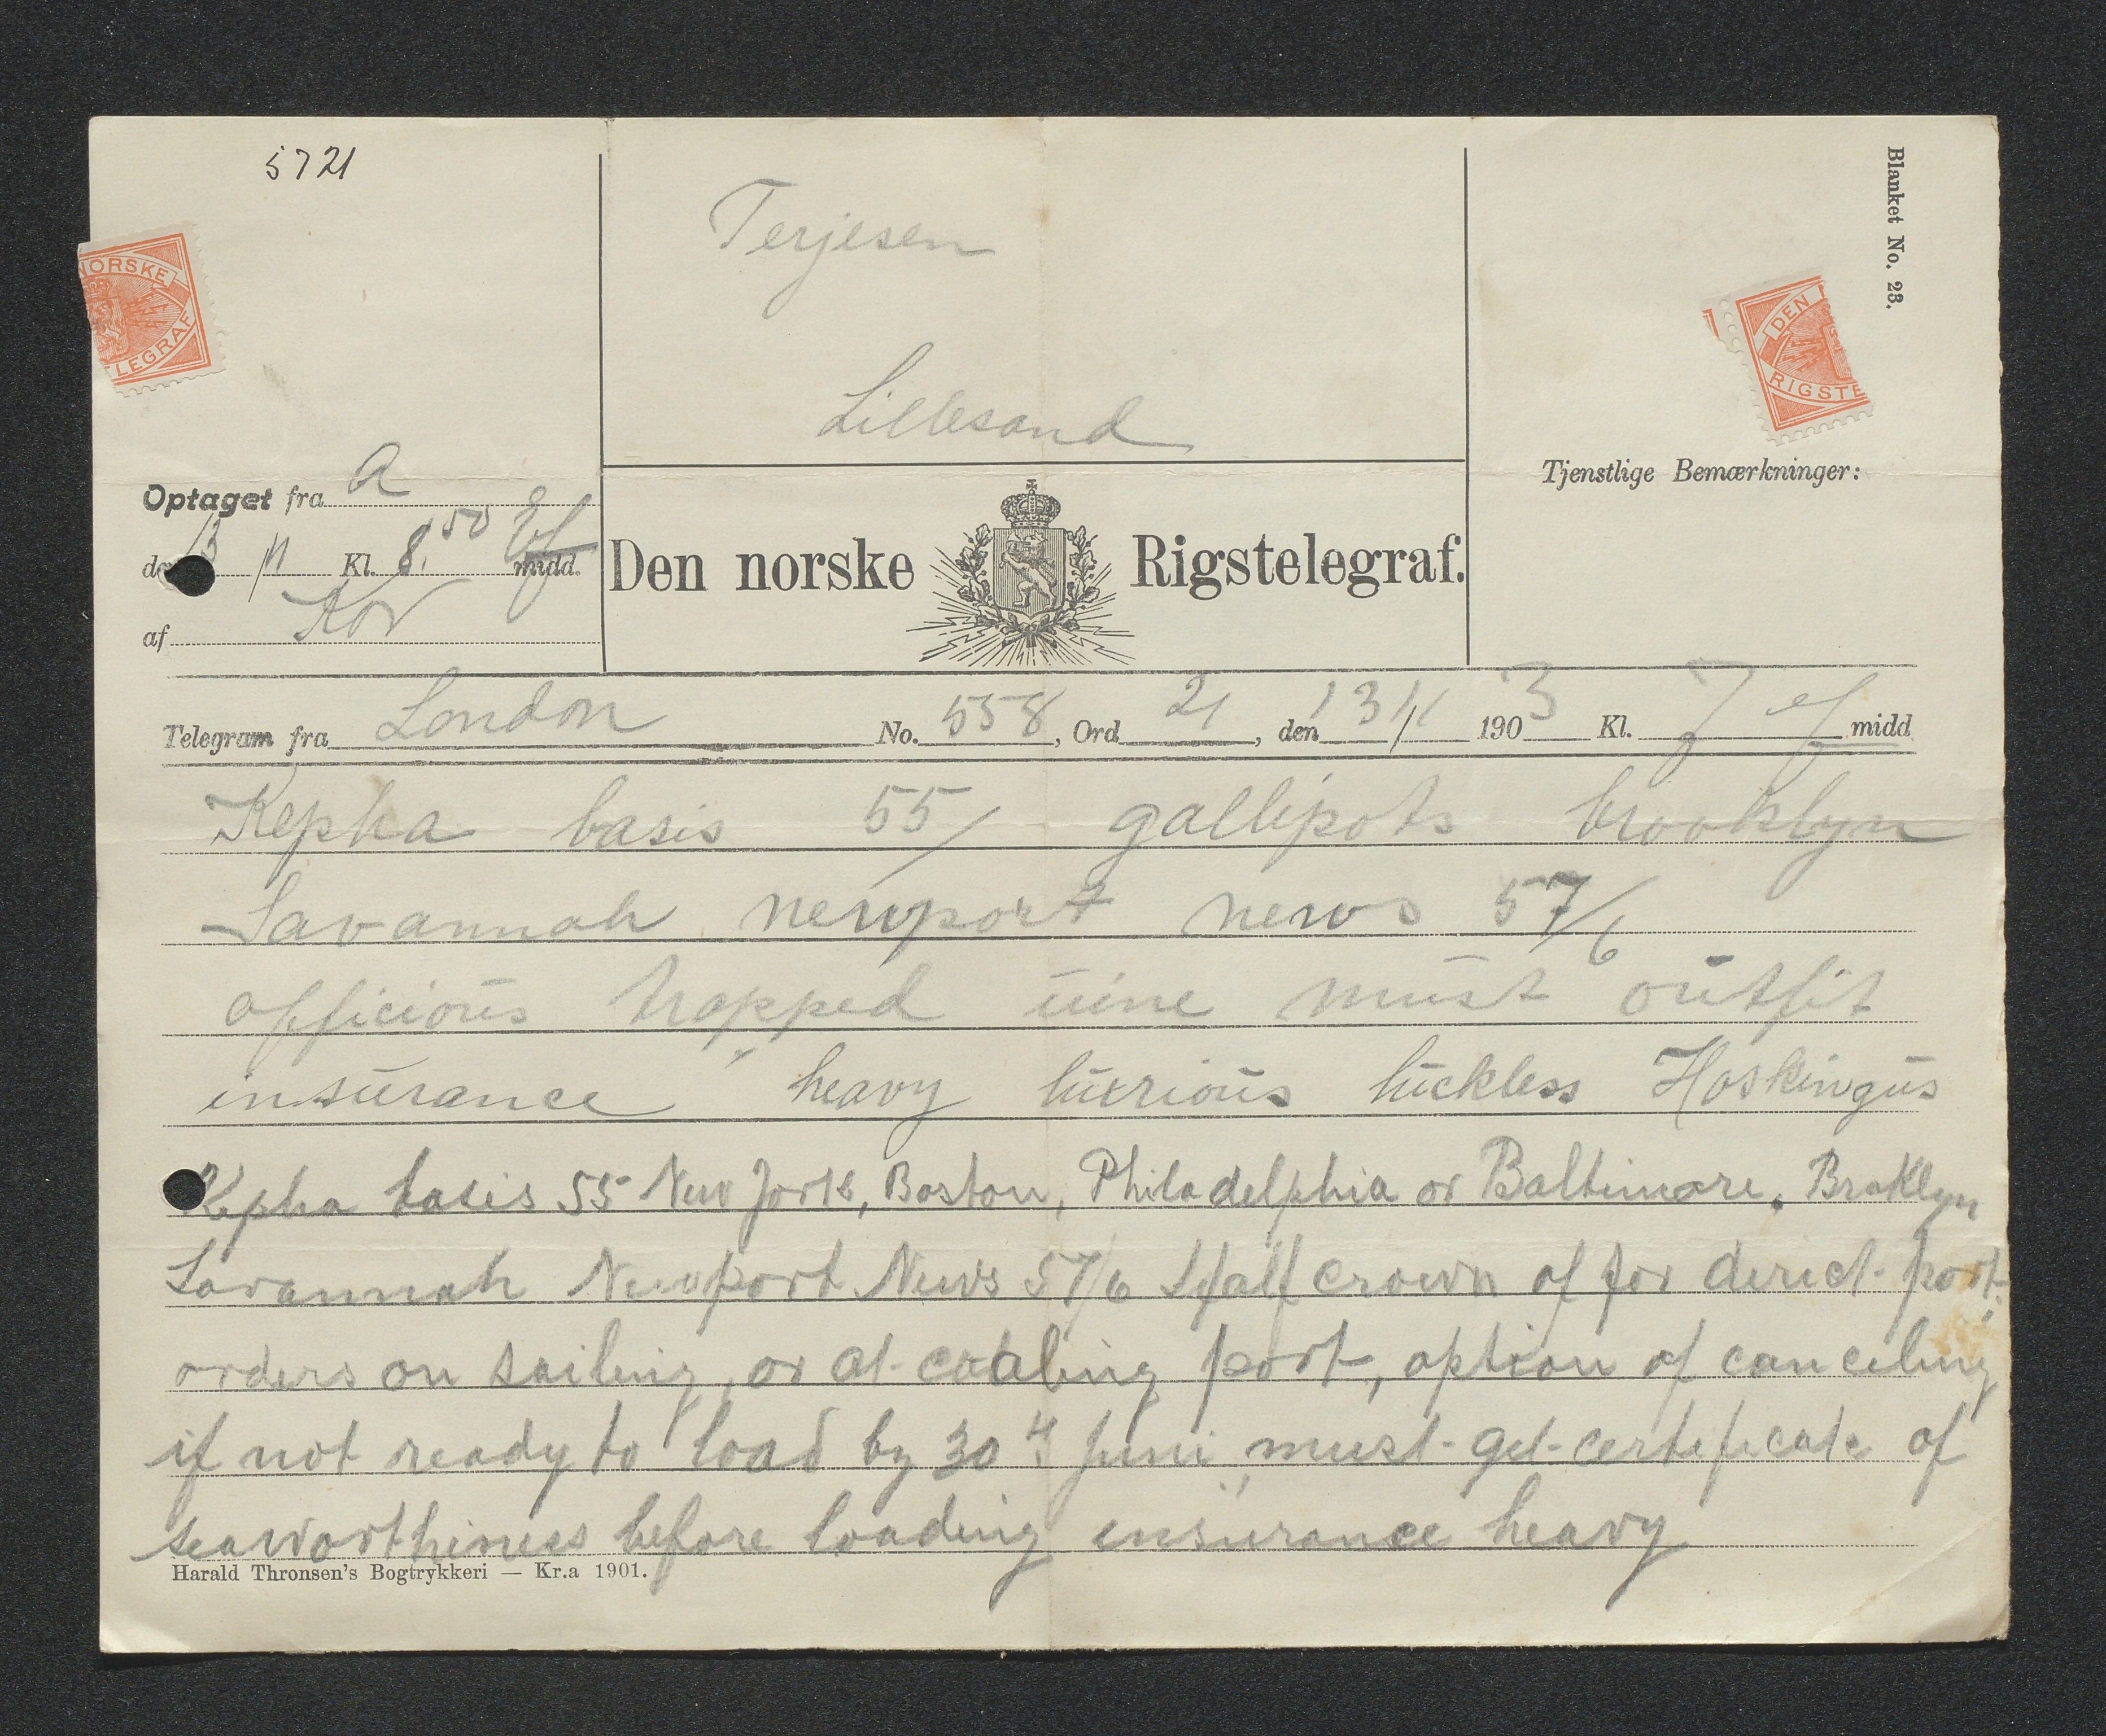 5721
Blanket No. 23.
Terjesen
Lillesand
NORSKE
LEGRAF
DEN
RIGSTE
Optaget fra a
13/11 Kl. 8.50 Ef midd.
af Kov
Den norske Rigstelegraf.
Tjenstlige Bemærkninger:
Telegram fra London No. 558, Ord 21, den 13/11 1903 Kl. 7 ef midd
Kepha basis 55/ gallipots brooklyn
Savannah newport news 57/6
officious trapped uine must outfit
insurance heavy luxrious luckless Hoskingus
Kepha basis 55 New York, Boston, Philadelphia or Baltimore, Broklyn
Savannah Newport News 57/6 Half crown of for direct port,
orders on sailing, or at coaling port, option of canceling
if not ready to load by 30th Juni, must get certificate of
seaworthiness before loading insurance heavy
Harald Thronsen's Bogtrykkeri — Kr.a 1901.